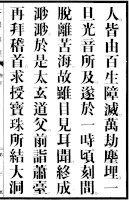 人皆由百生障滅萬劫塵埋一
旦光音所及遂於一時頃刻間
脫離苦海故雖目見耳聞終成
渺渺於是太玄道父前詣蕭臺
再拜稽首求授寶珠所結大洞